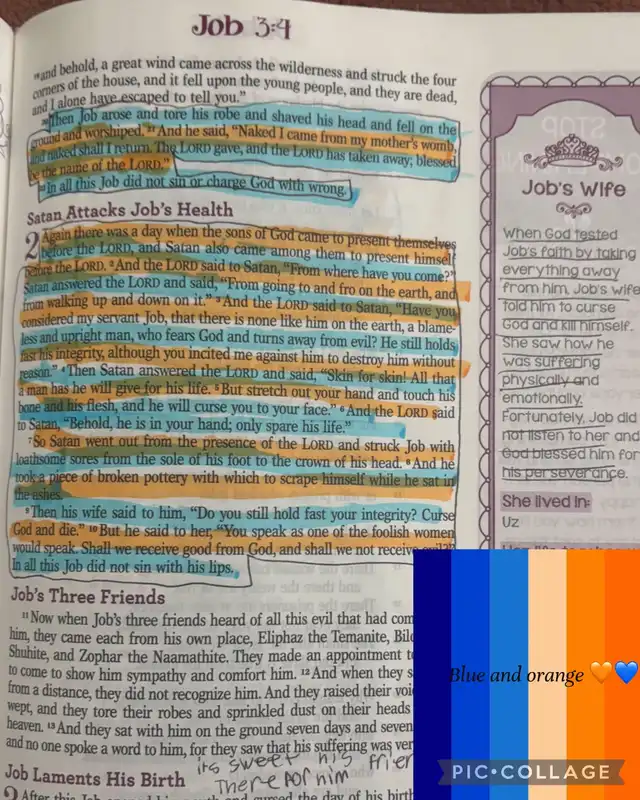 Job 3:4
19 and behold, a great wind came across the wilderness and struck the four
corners of the house, and it fell upon the young people, and they are dead,
and I alone have escaped to tell you.”
20 Then Job arose and tore his robe and shaved his head and fell on the
ground and worshiped. 21 And he said, “Naked I came from my mother's womb,
and naked shall I return. The LORD gave, and the LORD has taken away; blessed
be the name of the LORD.”
22 In all this Job did not sin or charge God with wrong.
Satan Attacks Job's Health
2 Again there was a day when the sons of God came to present themselves
before the LORD, and Satan also came among them to present himself
before the LORD. 2 And the LORD said to Satan, “From where have you come?”
Satan answered the LORD and said, “From going to and fro on the earth, and
from walking up and down on it.” 3 And the LORD said to Satan, “Have you
considered my servant Job, that there is none like him on the earth, a blame-
less and upright man, who fears God and turns away from evil? He still holds
fast his integrity, although you incited me against him to destroy him without
reason.” 4 Then Satan answered the LORD and said, “Skin for skin! All that
a man has he will give for his life. 5 But stretch out your hand and touch his
bone and his flesh, and he will curse you to your face.” 6 And the LORD said
to Satan, “Behold, he is in your hand; only spare his life.”
7 So Satan went out from the presence of the LORD and struck Job with
loathsome sores from the sole of his foot to the crown of his head. 8 And he
took a piece of broken pottery with which to scrape himself while he sat in
the ashes.
9 Then his wife said to him, “Do you still hold fast your integrity? Curse
God and die.” 10 But he said to her, “You speak as one of the foolish women
would speak. Shall we receive good from God, and shall we not receive evil?”
In all this Job did not sin with his lips.
Job's Three Friends
11 Now when Job's three friends heard of all this evil that had com
him, they came each from his own place, Eliphaz the Temanite, Bil
Shuhite, and Zophar the Naamathite. They made an appointment t
to come to show him sympathy and comfort him. 12 And when they s
from a distance, they did not recognize him. And they raised their voi
wept, and they tore their robes and sprinkled dust on their heads
heaven. 13 And they sat with him on the ground seven days and seven
and no one spoke a word to him, for they saw that his suffering was ver
its sweet his frien
There for him
Job Laments His Birth
3 After this Job opened his mouth and cursed the day of his birth
Job's Wife
When God tested
Job's faith by taking
everything away
from him, Job's wife
told him to curse
God and kill himself.
She saw how he
was suffering
physically and
emotionally.
Fortunately, Job did
not listen to her and
God blessed him for
his perseverance.
She lived in:
Uz
Blue and orange 🧡💙
PIC•COLLAGE